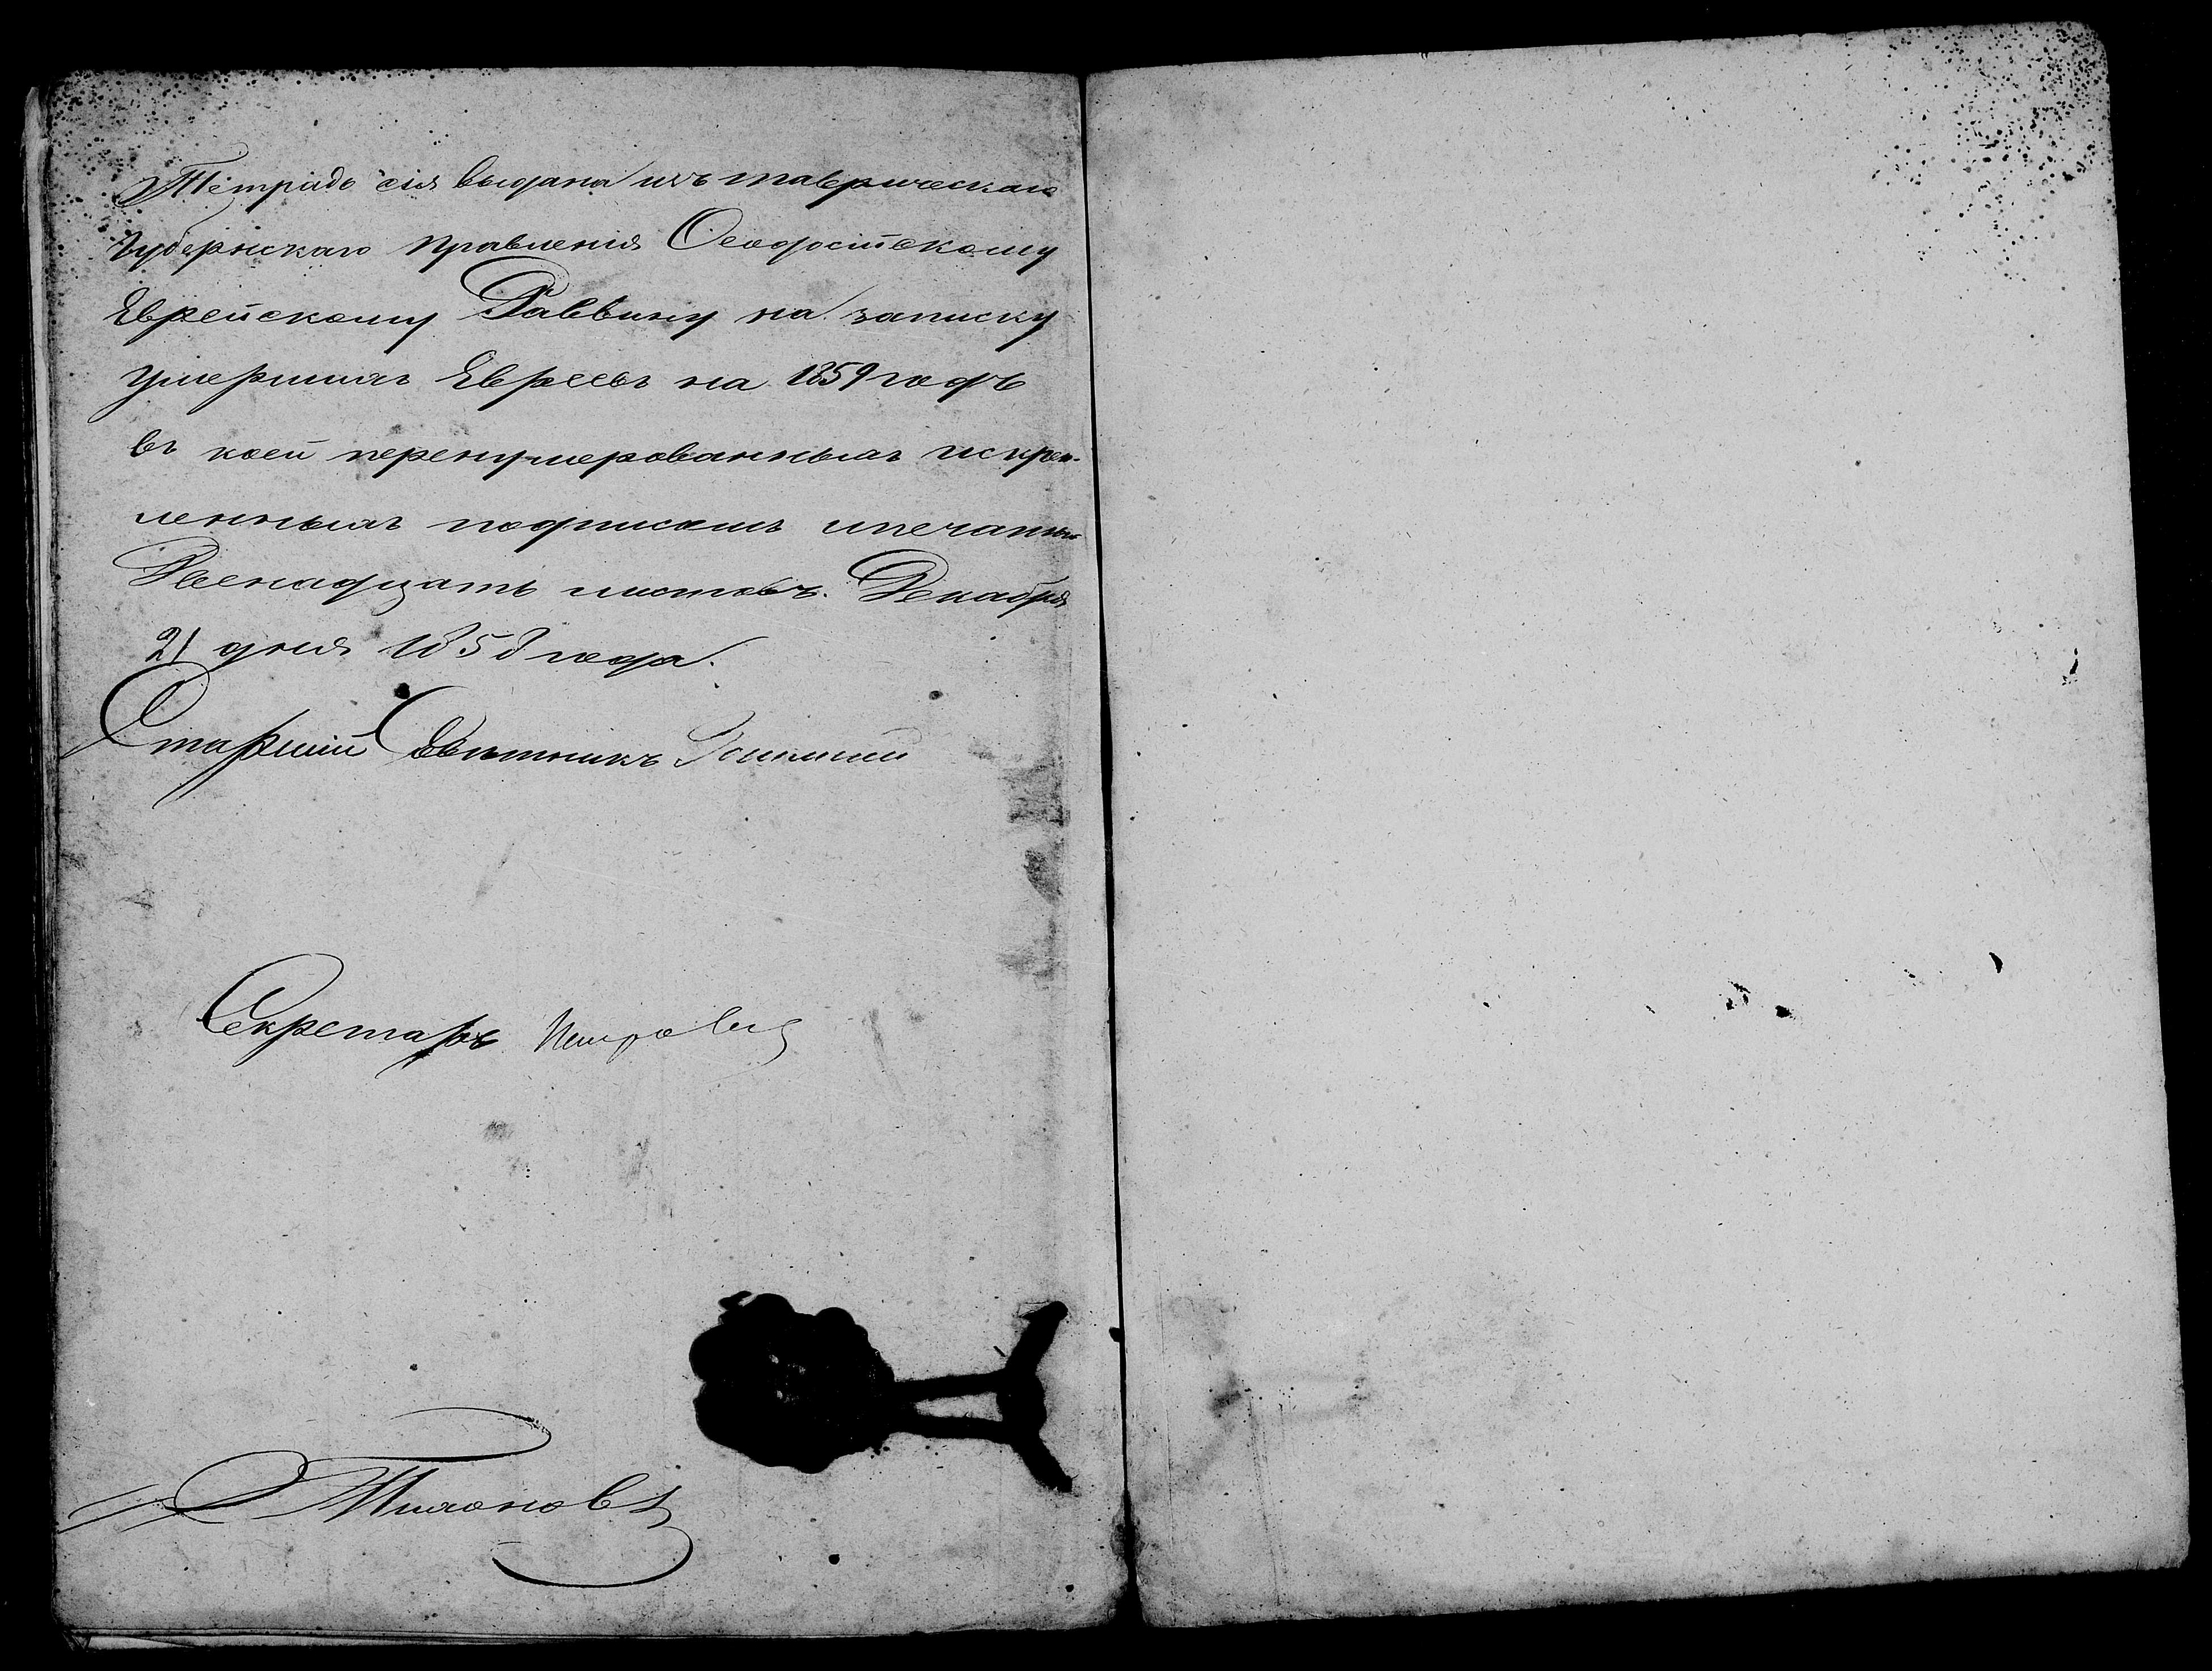 Тетрадь сія выдана изъ таврическаго
Губернскаго правленія Ѳеодосійскому
Еврейскому Раввину на записку
умершихъ Евреевъ на 1859 годъ
въ коей перенумерованныхъ искреп-
ленныхъ подписомъ ипечатью
Двенадцать листовъ. Декабря
21 дня 1858 года.
Старшій Совѣтникъ
Секретарь
Тихоновъ